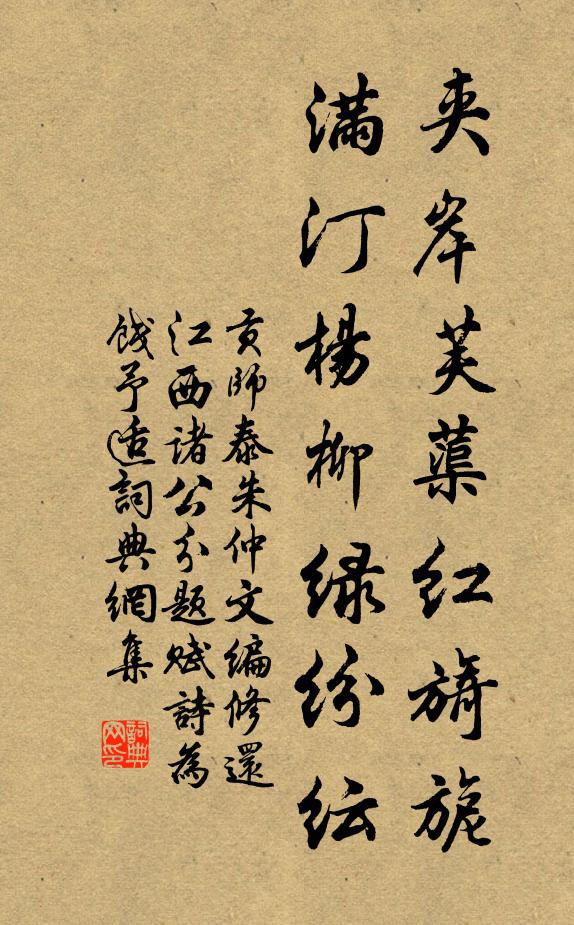 夹岸芙蕖红旖旎
满汀杨柳绿纷纭
贡师泰朱仲文编修还
江西诸公分题赋诗为
饯予适詞典網集
詞典網印